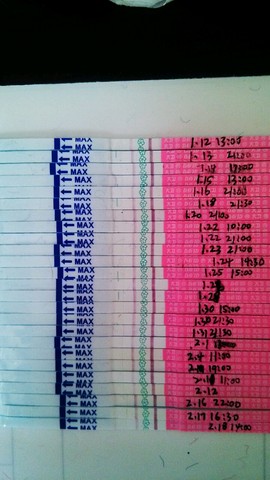 MAX 1.12 13:00
MAX 1.13 21:00
MAX 1.13
MAX 1.15 13:00
MAX 1.16 21:00
MAX 1.18 21:30
MAX 1.20 21:00
MAX 1.22 10:00
MAX 1.22 21:00
MAX 1.23 21:00
MAX 1.24 19:30
MAX 1.25 15:00
MAX
MAX 1.28
MAX 1.30 15:00
MAX 1.30 21:30
MAX 1.31 21:30
MAX 2.1
MAX 2.4 11:00
MAX
MAX 11:00
MAX 2.12
MAX 2.16 22:00
MAX 2.17 16:30
MAX 2.18 14:00